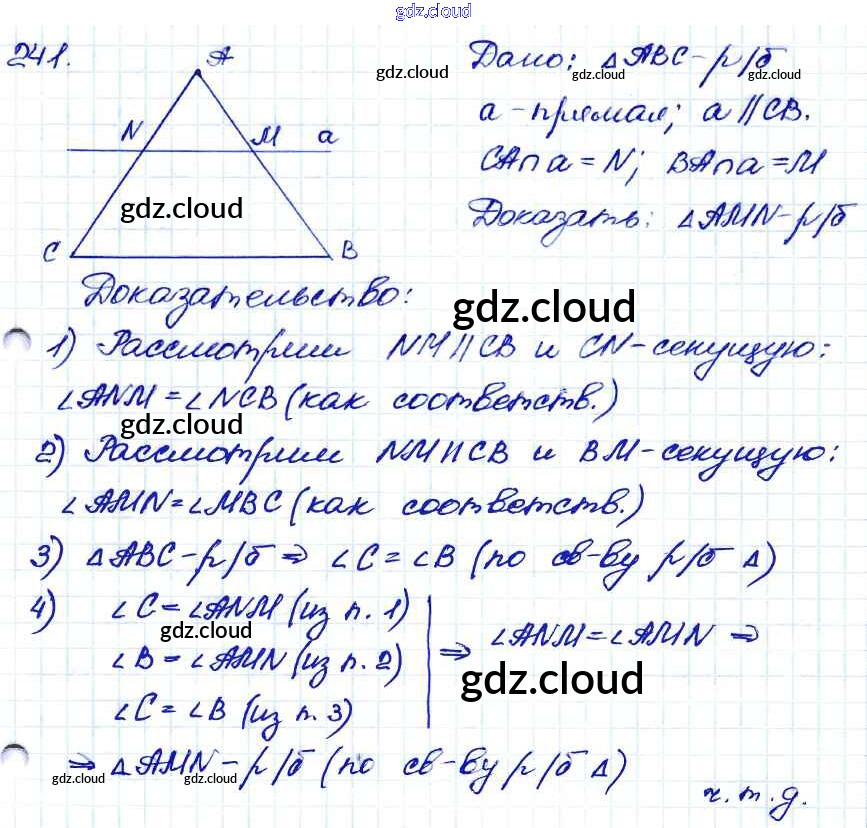 gdz.cloud
241.
A
N M a
gdz.cloud
C B
Дано: △ABC - р/б
gdz.cloud gdz.cloud gdz.cloud
a - прямая; a || CB.
CA∩a = N; BA∩a = M
Доказать: △AMN - р/б
Доказательство:
gdz.cloud
1) Рассмотрим NM || CB и CN - секущую:
∠ANM = ∠NCB (как соответств.)
gdz.cloud
2) Рассмотрим NM || CB и BM - секущую:
∠AMN = ∠MBC (как соответств.)
3) △ABC - р/б ⇒ ∠C = ∠B (по св-ву р/б △)
4) ∠C = ∠ANM (из п. 1)
gdz.cloud
∠B = ∠AMN (из п. 2)
∠C = ∠B (из п. 3)
⇒ ∠ANM = ∠AMN ⇒
gdz.cloud
⇒ △AMN - р/б (по св-ву р/б △)
gdz.cloud gdz.cloud gdz.cloud
ч.т.д.